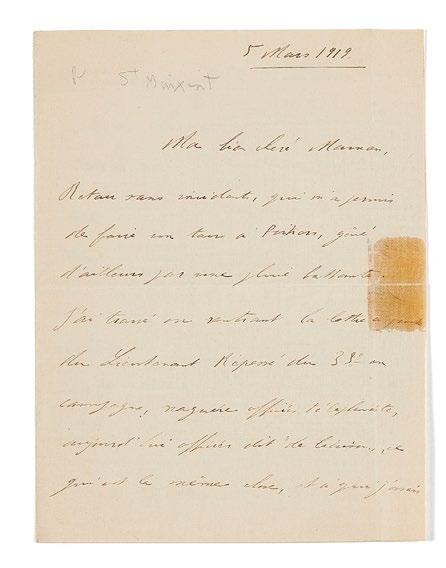 5 Mars 1919
P St Maixent
Ma bien chère Maman,
Retour sans incidents, qui m'a permis
de faire un tour à Poitiers, gêné
d'ailleurs par une pluie battante.
J'ai trouvé en rentrant la lettre
du Lieutenant du 33e en
campagne, naguère officier
aujourd'hui officier dit de liaison, ce
qui est la même chose, et à qui j'avais